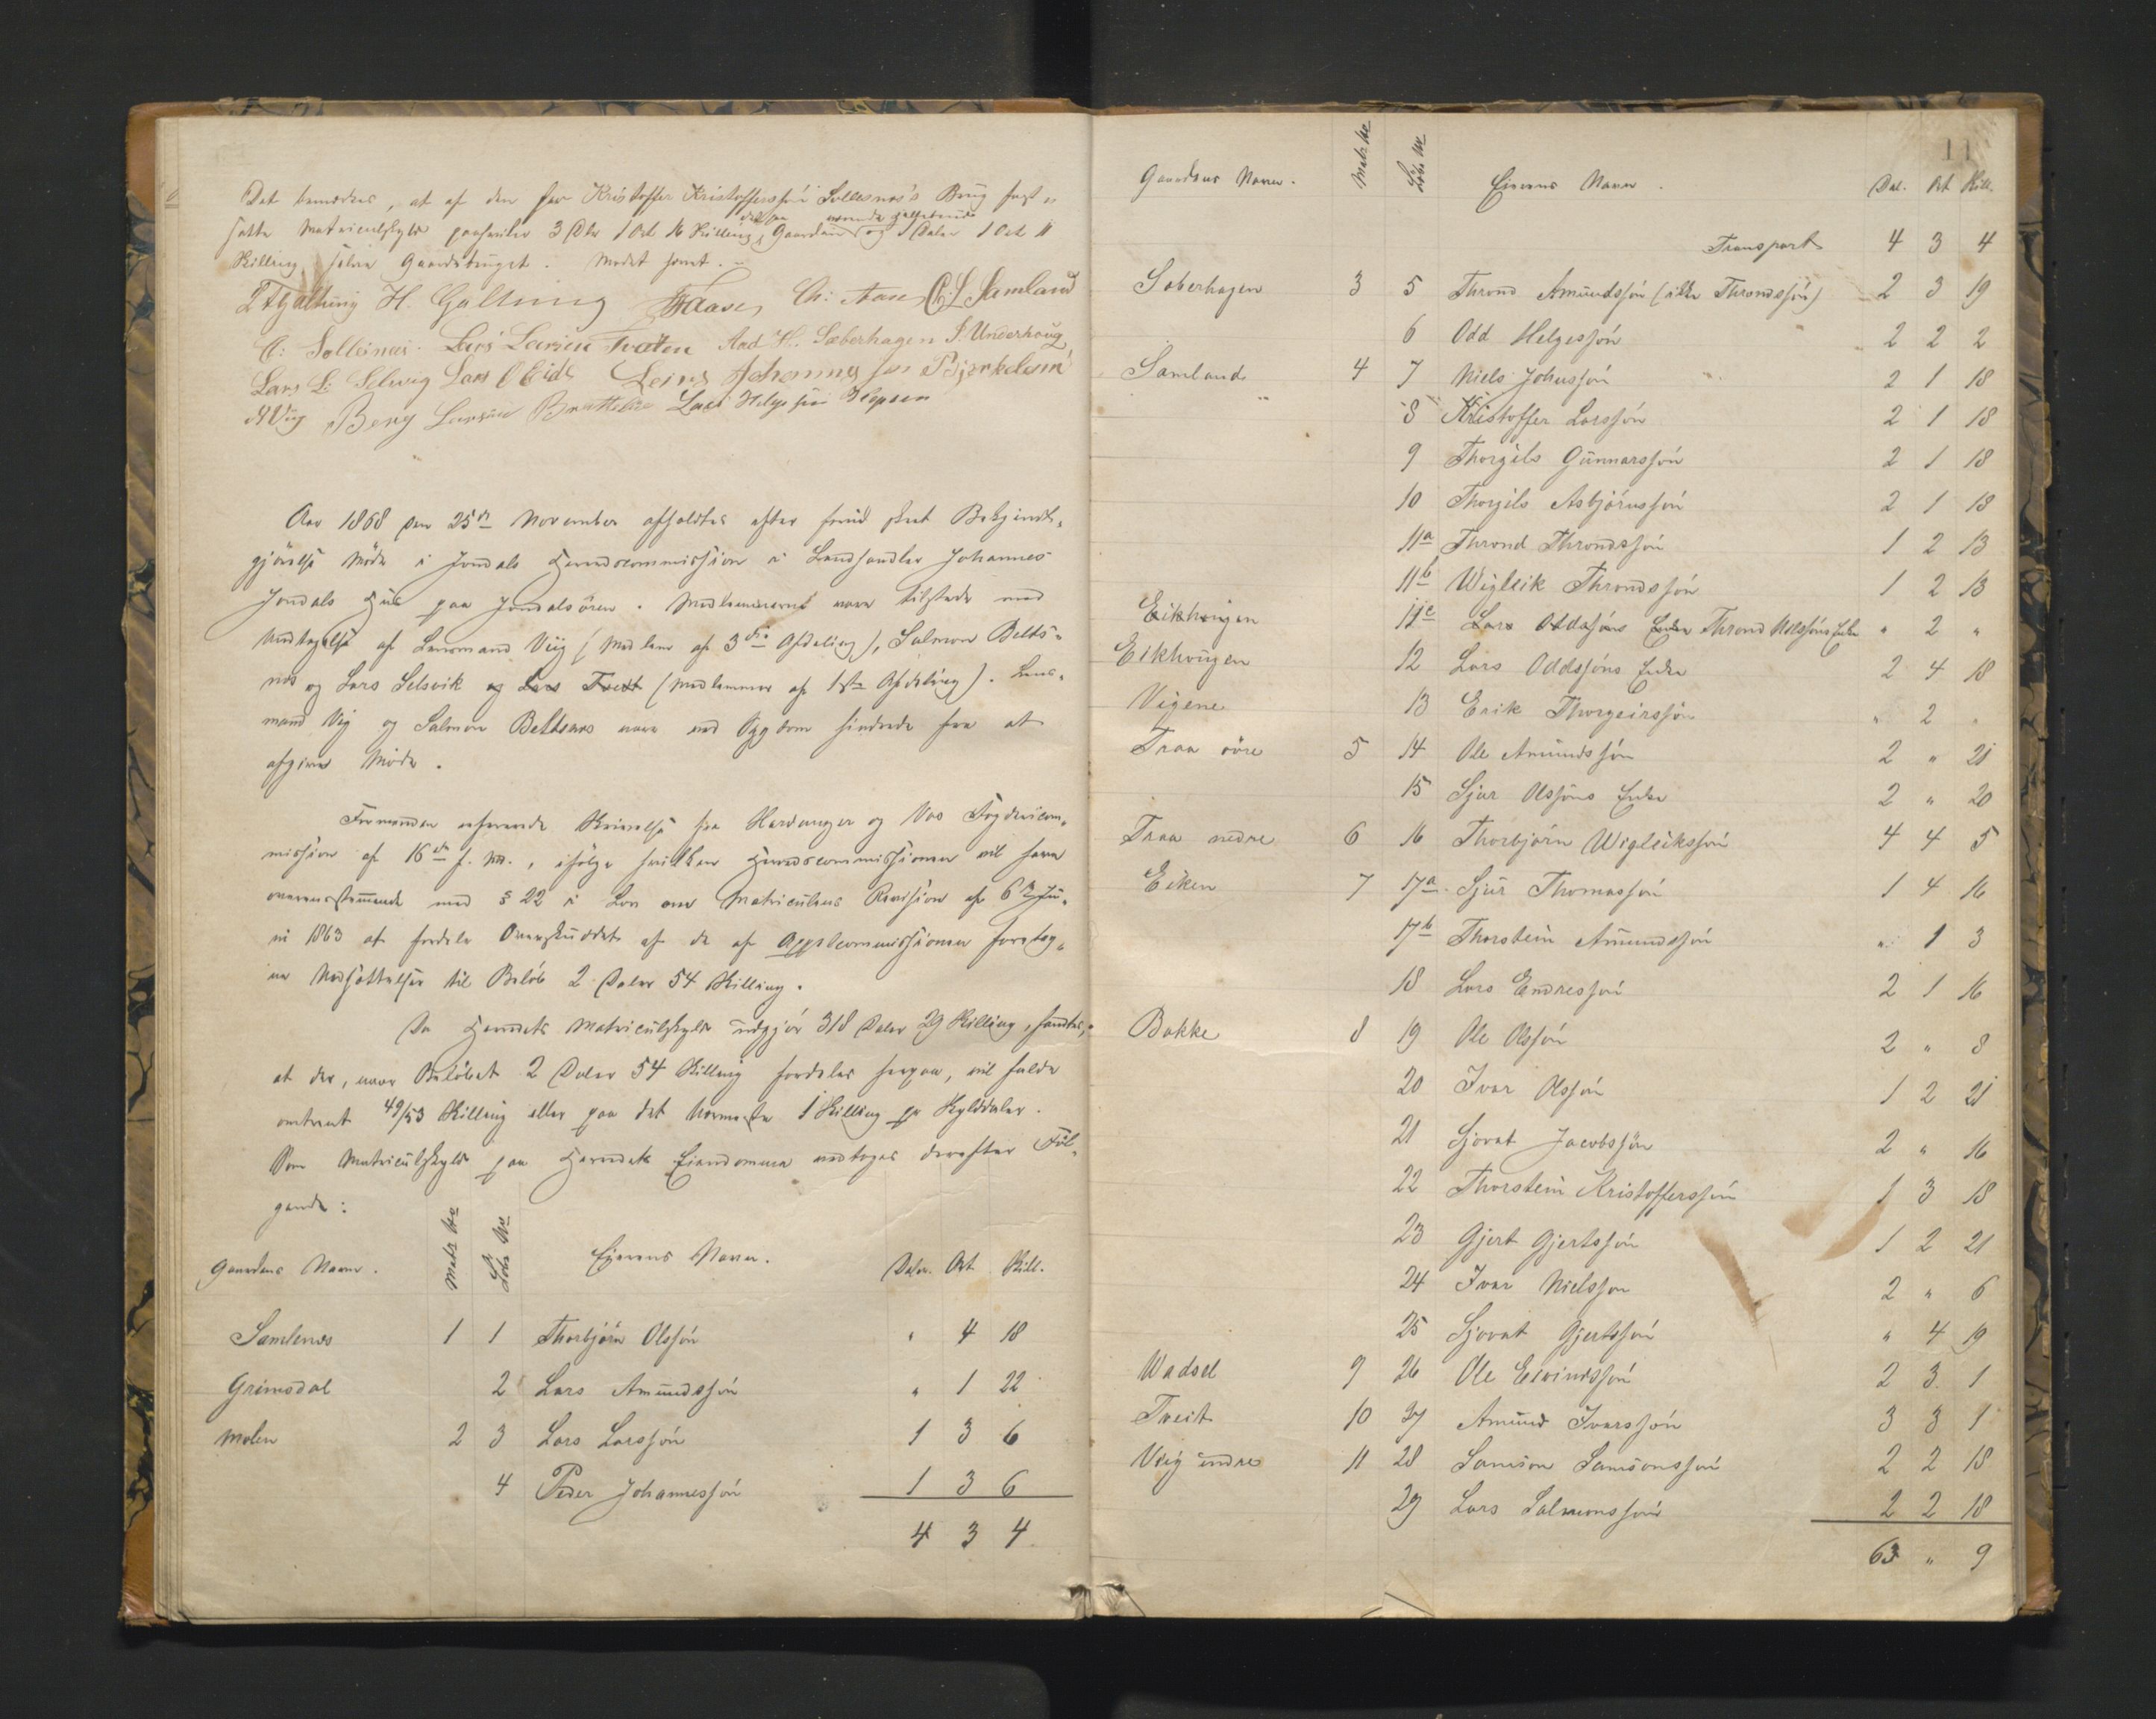 Det bemærkes, at af den for Kristoffer Kristofferssön Sollesnæs's Brug fast-
satte Matriculskyld paahviler 3 Dlr 1 Ort 16 Skilling Gaarden og 1 Daler 1 Ort 11
Skilling selve Gaardsbruget. Mödet hævet.
H. Galtung Chr. Aase C L Samland
Lars Larsen Tveten Aad H. Sæberhagen S. Underhoug
Lars L. Selsvig Lars Johannes sen Bjørkeland
Wiig Berg Larsen Brattebøe Lars Helgesson
Aar 1868 den 25de November afholdtes efter forud skeet Bekjendt-
gjörelse Möde i Jondals Herredscommission i Landhandler Johannes
Jondals Hus paa Jondalsören. Medlemmerne vare tilstede med
Undtagelse af Lensmand Viig (Medlem af 3die Afdeling), Salmon Belts-
næs og Lars Selsvik og Lars Tvedt (Medlemmer af 1ste Afdeling). Lens-
mand Vig og Salmon Beltsnæs vare ved Sygdom hindrede fra at
afgive Möde.
Formanden refererede Skrivelse fra Hardanger og Vos Fogdericom-
mission af 16de f. M., ifölge hvilken Herredscommissionen vil have
overensstemmende med § 22 i Lov om Matriculens Revision af 6te Ju-
ni 1863 at fordele Overskuddet af de af Appelcommissionen foretag-
ne Nedsættelser til Belöb 2 Daler 54 Skilling.
Da Herredets Matriculskyld udgjör 318 Daler 29 Skilling, fandtes,
at der, naar Belöbet 2 Daler 54 Skilling fordeles herpaa, vil falde
omtrent 49/53 Skilling eller paa det Nærmeste 1 Skilling pr Skylddaler.
Som Matriculskyld paa Herredets Eiendomme vedtoges derefter Föl-
gende:
Gaardens Navn. Matr No Löbe No Eierens Navn. Daler. Ort Skill.
Samlenæs 1 1 Thorbjörn Olssön " 4 18
Grimsdal 2 Lars Amundssön " 1 22
Molen 2 3 Lars Larssön 1 3 6
4 Peder Johannessön 1 3 6
4 3 4
11
Gaardens Navn. Matr No Löbe No Eierens Navn. Dal. Ort Skill.
Transport 4 3 4
Soberhagen 3 5 Thrond Amundssön (ikke Throndssön) 2 3 19
6 Odd Helgessön 2 2 2
Samland 4 7 Niels Johnssön 2 1 18
" 8 Kristoffer Larssön 2 1 18
9 Thorgils Gunnarssön 2 1 18
10 Thorgils Asbjörnssön 2 1 18
11a Thrond Throndssön 1 2 13
11b Wigleik Throndssön 1 2 13
Eikhaugen 11c Lars Oddssöns Enke Thrond Nilssöns Enke " 2 "
Eikhougen 12 Lars Oddssöns Enke 2 4 18
Vigene 13 Erik Thorgeirssön " 2 "
Traa övre 5 14 Ole Amundssön 2 " 21
15 Sjur Olssöns Enke 2 " 20
Traa nedre 6 16 Thorbjörn Wigleikssön 4 4 5
Eiken 7 17a Sjur Thomassön 1 4 16
17b Thorstein Amundssön " 1 3
18 Lars Endressön 2 1 16
Bakke 8 19 Ole Olssön 2 " 8
20 Ivar Olssön 1 2 21
21 Sjovat Jacobssön 2 " 16
22 Thorstein Kristofferssön 1 3 18
23 Gjert Gjertssön 1 2 21
24 Ivar Nielsson 2 " 6
25 Sjovat Gjertssön " 4 19
Wadsel 9 26 Ole Eivindssön 2 3 1
Tveit 10 27 Amund Ivarssön 3 3 1
Viig indre 11 28 Samson Samsonssön 2 2 18
29 Lars Salmonssön 2 2 18
63 " 9